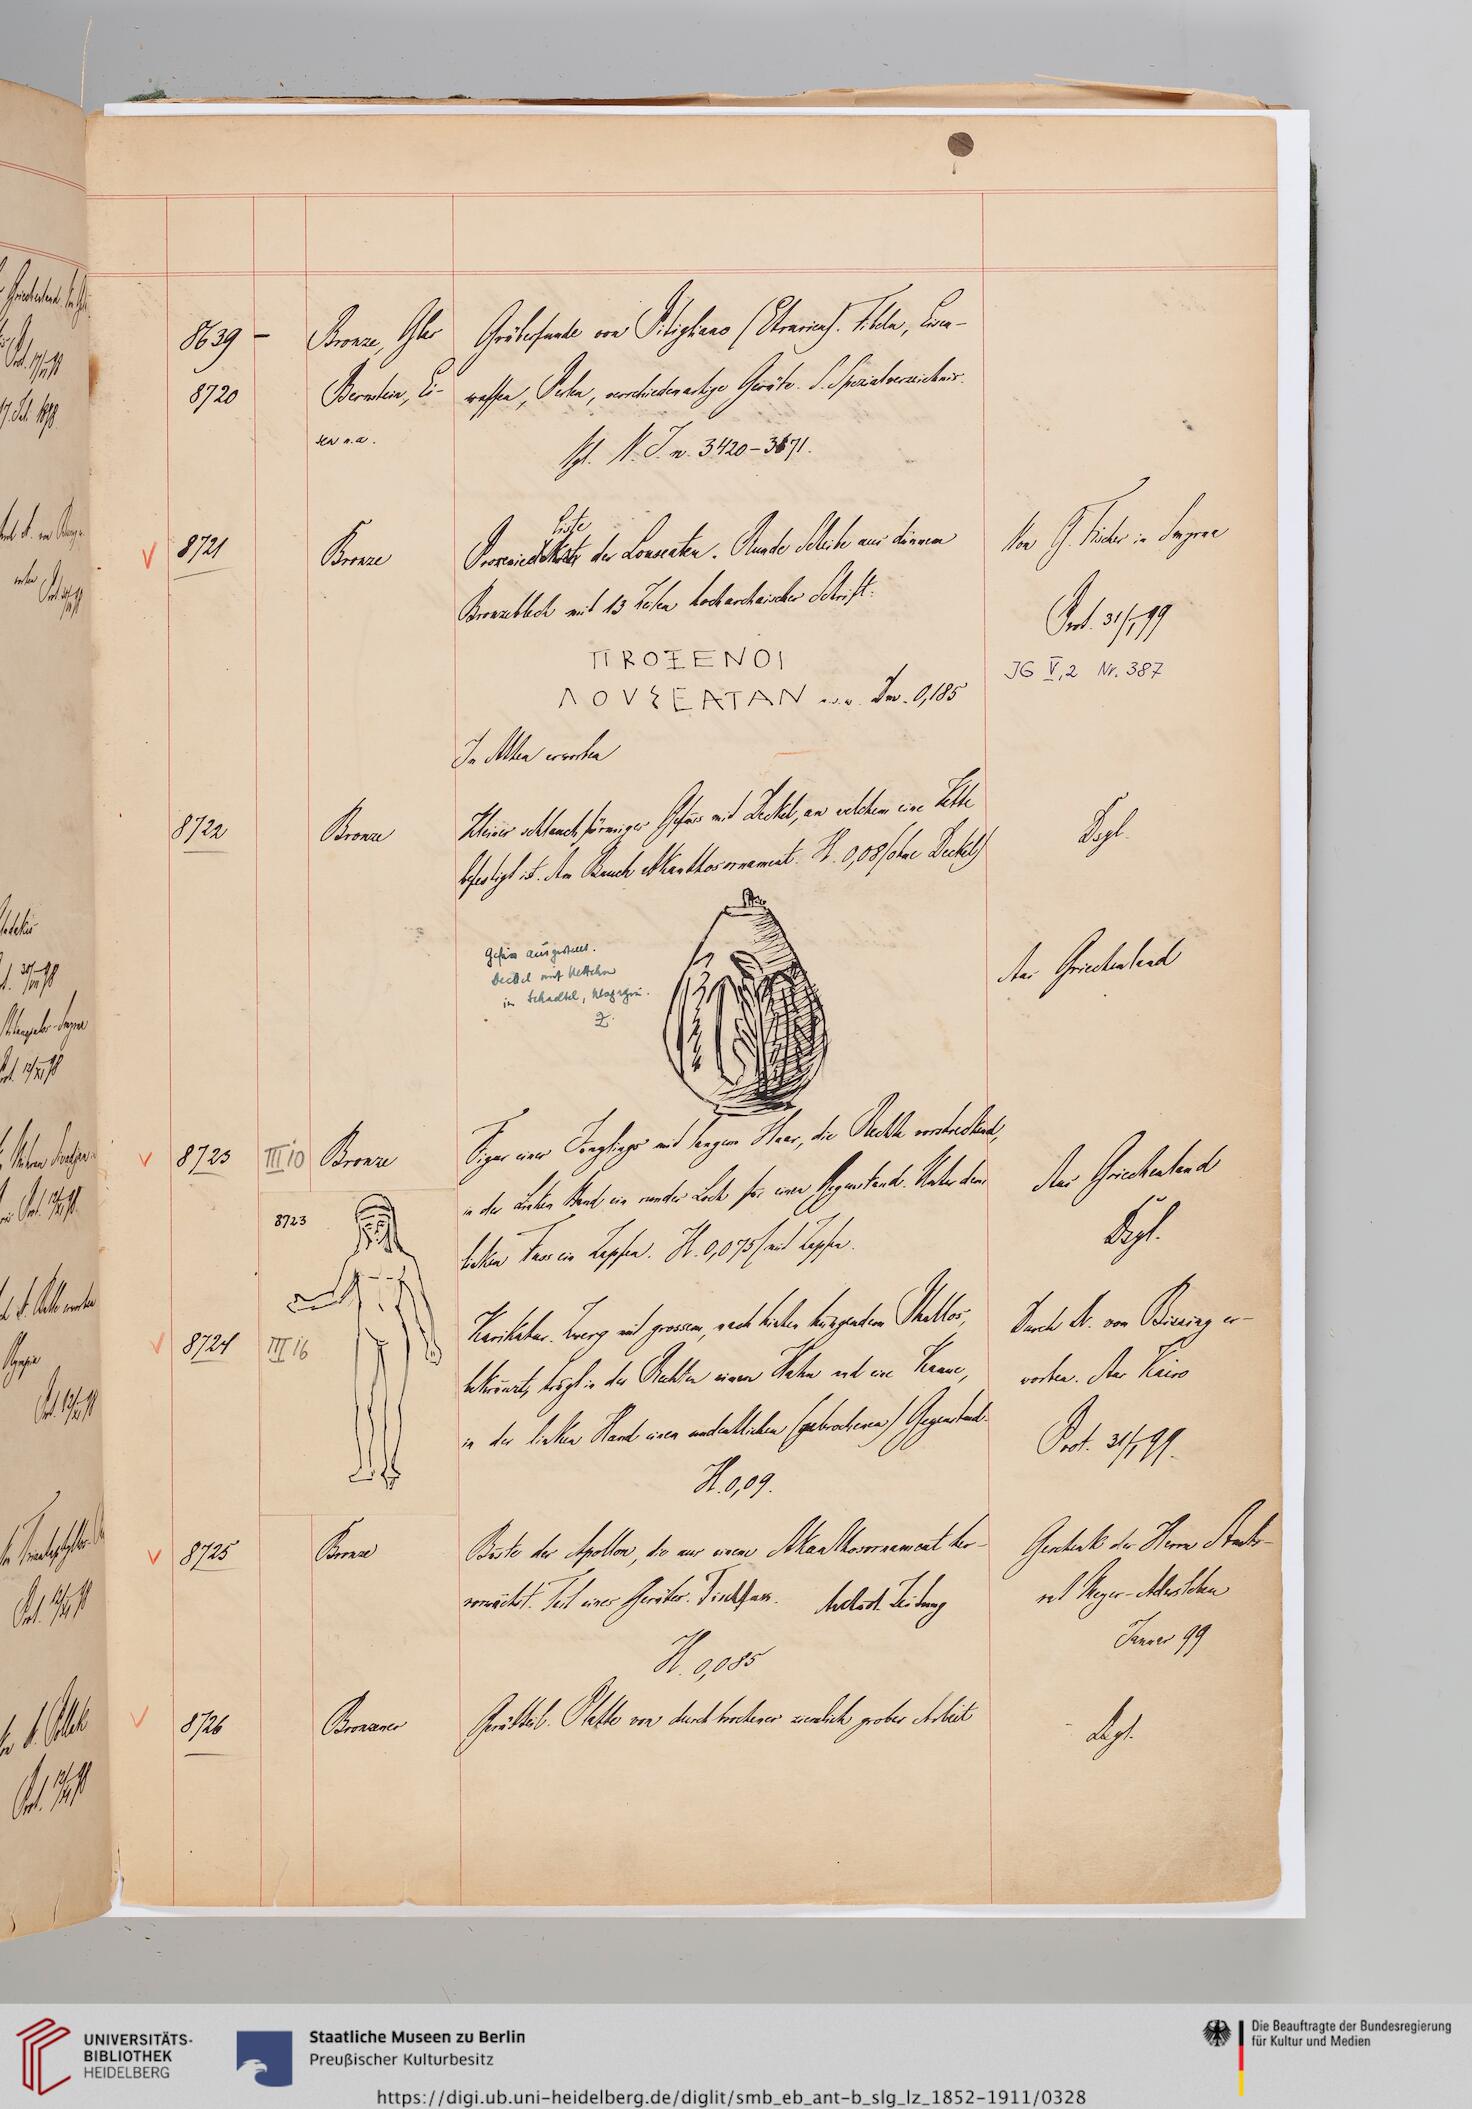 8639 – Bronze, Glas Gräberfunde von Pitigliano (Etrurien). Fibeln, Eisen-
8720 Bernstein, Ei- waffen, Perlen, verschiedenartige Geräte. S. Spezialverzeichnis.
sen u. a. Vgl. N. I. n. 3420–3671.
8721 Bronze Proxenieliste der Louseaten. Runde Scheibe aus dünnem Von G. Fischer in Smyrna
Bronzeblech mit 13 Zeilen hocharchaischer Schrift: Prot. 31/I 99
ΠROΞENOI JG V,2 Nr. 387
ΛOVSEATAN u.s.w. Dm. 0,185
In Athen erworben
8722 Bronze Kleines schlauchförmiges Gefäss mit Deckel, an welchem eine Kette Dsgl.
befestigt ist. Am Bauch Akanthosornament. H. 0,08 (ohne Deckel)
Gefäss ausgestellt. Aus Griechenland
Deckel mit Kettchen
in Schachtel,
8723 III i 10 Bronze Figur eines Jünglings mit langem Haar, die Rechte vorstreckend, Aus Griechenland
8723 in der Linken Hand ein rundes Loch für einen Gegenstand. Unter dem Dsgl.
linken Fuss ein Zapfen. H. 0,075 (mit Zapfen.
8724 III i 6 Karikatur. Zwerg mit grossem, nach hinten hängendem Phallos, Durch Dr. von Bissing er-
bekränzt, trägt in der Rechten einen Hahn und eine Kanne, worben. Aus Kairo
in der linken Hand einen undeutlichen (gebrochenen) Gegenstand. Prot. 31/I 99.
H. 0,09.
8725 Bronze Büste des Apollon, die aus einem Akanthosornament her- Geschenk des Herrn Amts-
vorwächst. Teil eines Gerätes. Tischfuss. rat Meyer-
H. 0,085 Januar 99
8726 Bronzener Geräthteil. Platte von durchbrochener ziemlich grober Arbeit Dsgl.
UNIVERSITÄTS-
BIBLIOTHEK
HEIDELBERG
Staatliche Museen zu Berlin
Preußischer Kulturbesitz
Die Beauftragte der Bundesregierung
für Kultur und Medien
https://digi.ub.uni-heidelberg.de/diglit/smb_eb_ant-b_slg_lz_1852-1911/0328